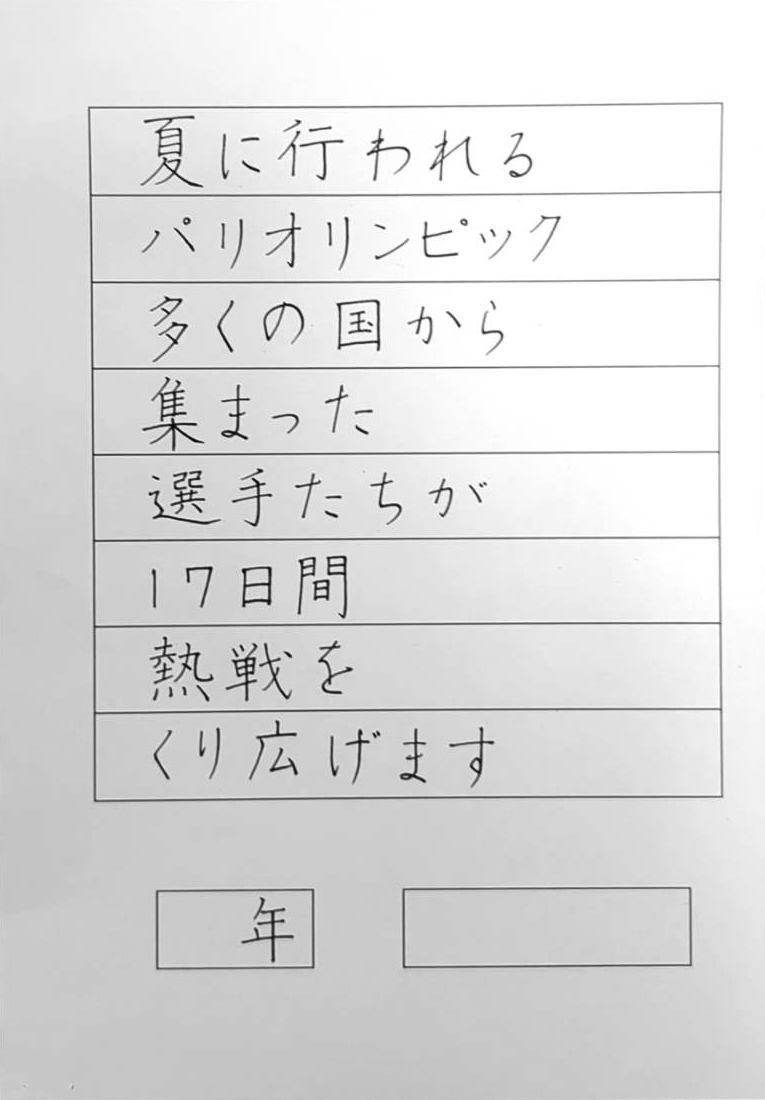 夏に行われる
パリオリンピック
多くの国から
集まった
選手たちが
17日間
熱戦を
くり広げます
年